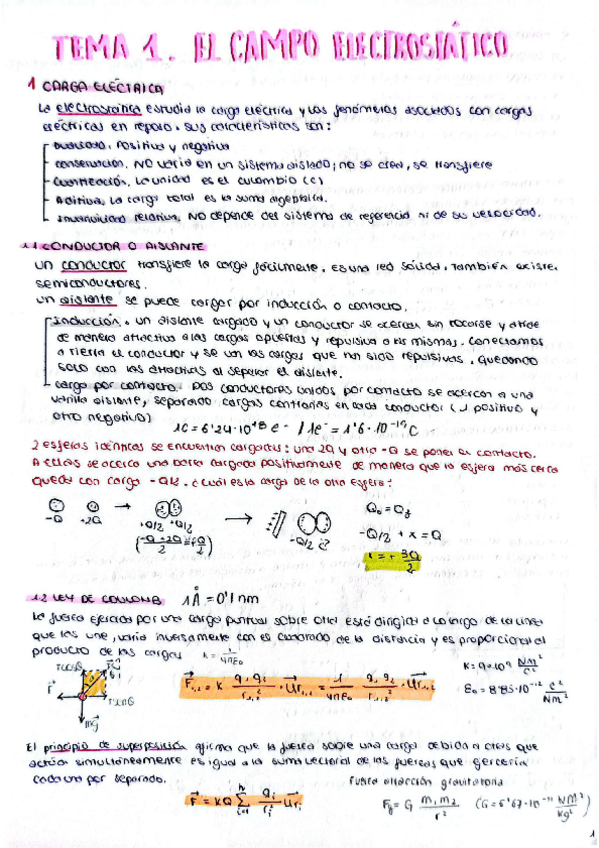 TEMA 1. EL CAMPO ELECTROSTÁTICO
1 CARGA ELÉCTRICA
La electrostática estudia la carga eléctrica y los fenómenos asociados con cargas
eléctricas en reposo. Sus características son:
Dualidad. Positiva y negativa
Conservación. NO varía en un sistema aislado; no se crea, se transfiere
Cuantización. La unidad es el culombio (C)
Aditiva. La carga total es la suma algebraica.
Invariabilidad relativa. NO depende del sistema de referencia ni de su velocidad.
1.1 CONDUCTOR O AISLANTE
Un conductor transfiere la carga fácilmente. Es una red sólida. También existen
semiconductores.
Un aislante se puede cargar por inducción o contacto.
Inducción. Un aislante cargado y un conductor se acercan sin tocarse y atrae
de manera atractiva a las cargas opuestas y repulsiva a las mismas. Conectamos
a tierra el conductor y se van las cargas que han sido repulsivas. Quedando
solo con las atractivas al separar el aislante.
Carga por contacto. Dos conductores unidos por contacto se acercan a una
varilla aislante, separando cargas contrarias en cada conductor (1 positivo y
otro negativo)
1C = 6'24·10¹⁸ e⁻ / 1e⁻ = 1'6·10⁻¹⁹ C
2 esferas idénticas se encuentran cargadas: una 2Q y otra -Q se ponen en contacto.
A ellas se acerca una barra cargada positivamente de manera que la esfera más cerca
queda con carga -Q/2. ¿Cuál es la carga de la otra esfera?
-Q +2Q → +Q/2 +Q/2 → -Q/2 ¿?
(-Q+2Q/2 = +Q/2)
Q₀ = Qf
-Q/2 + x = Q
x = + 3Q/2
1.2 LEY DE COULOMB 1Å = 0'1 nm
La fuerza ejercida por una carga puntual sobre otra está dirigida a lo largo de la línea
que las une, varía inversamente con el cuadrado de la distancia y es proporcional al
producto de las cargas K = 1/4πε₀
F₁,₂ = K q₁ q₂/r₁,₂² · ur₁,₂ = 1/4πε₀ · q₁ q₂/r₁,₂² · ur₁,₂
K = 9·10⁹ Nm²/C²
ε₀ = 8'85·10⁻¹² C²/Nm²
mg
El principio de superposición afirma que la fuerza sobre una carga debida a otras que
actúan simultáneamente es igual a la suma vectorial de las fuerzas que ejercería
cada una por separado.
F = KQ Σ qi/ri² uri
Fuerza atracción gravitatoria
Fg = G m₁m₂/r² (G = 6'67·10⁻¹¹ Nm²/kg²)
1